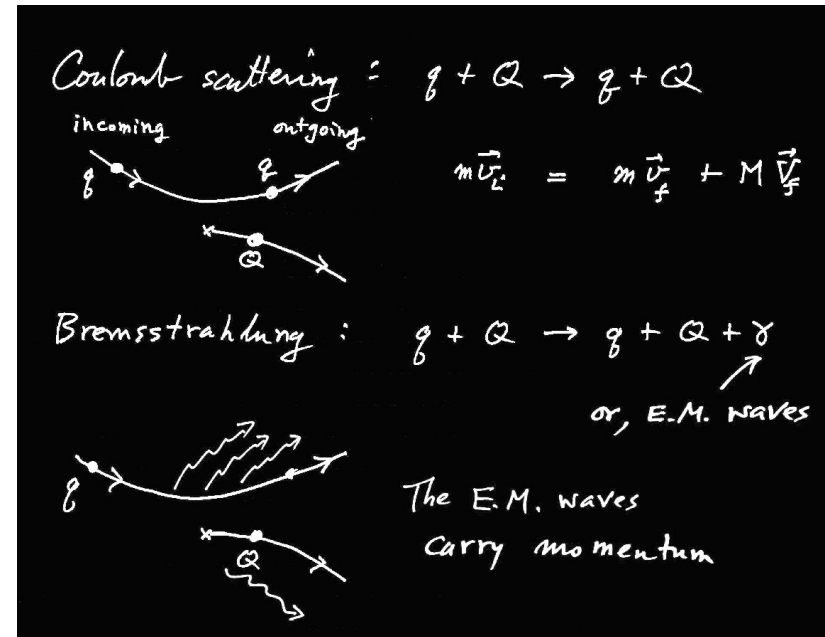 Coulomb scattering : q + Q → q + Q
incoming outgoing
q q
m v⃗ᵢ = m v⃗_f + M V⃗_f
Q
Bremsstrahlung : q + Q → q + Q + γ
or, E.M. waves
q
The E.M. waves
carry momentum
Q